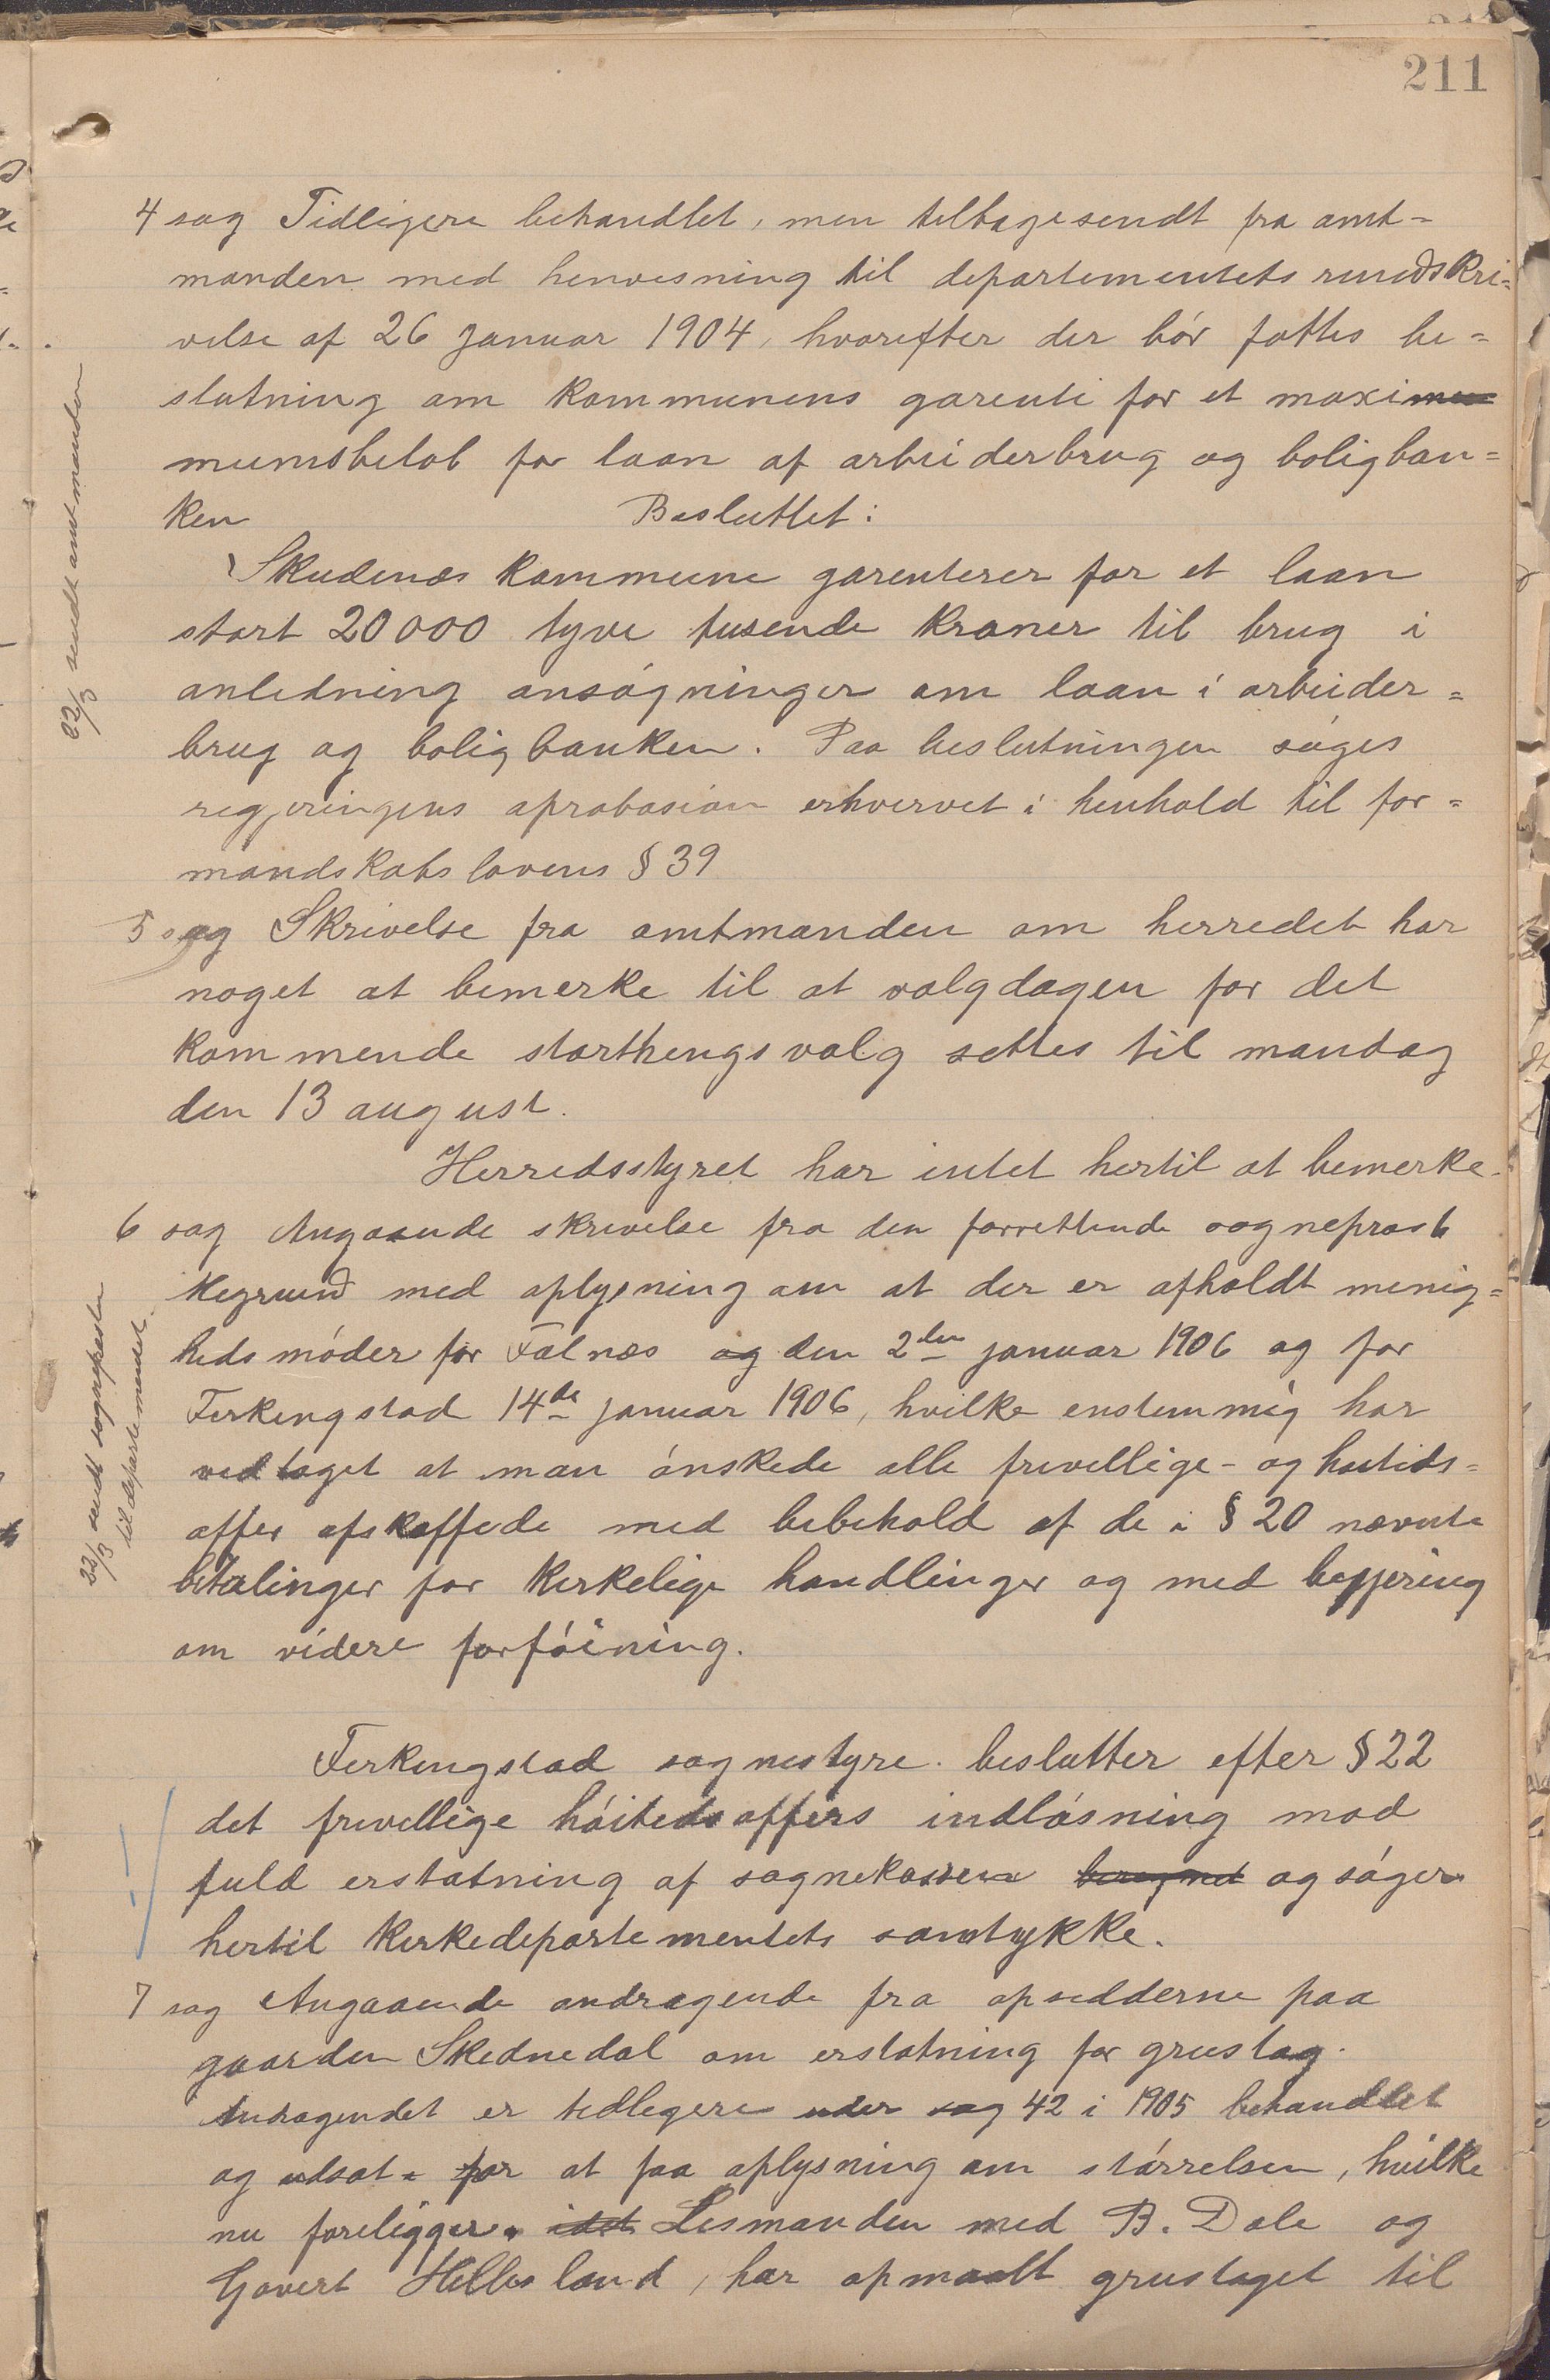 211
4 sag Tidligere behandlet, men tilbagesendt fra amt=
manden med henvisning til departementets rundskri=
velse af 26 januar 1904, hvorefter der bör fattes be=
slutning om kommunens garenti for et maxi
mumsbelöb for laan af arbeiderbrug og boligban=
ken Besluttet:
Skudenæs kommune garenterer for et laan
stort 20000 tyve tusende kroner til brug i
anledning ansögninger om laan i arbeider=
brug og boligbanken. Paa beslutningen söges
regjeringens aprobasion erhvervet i henhold til for=
mandskabslovens § 39
5 sag Skrivelse fra amtmanden om herredet har
noget at bemerke til at valgdagen for det
kommende storthingsvalg settes til mandag
den 13 august.
Herredsstyret har intet hertil at bemerke.
6 sag Angaaende skrivelse fra den forrettende sogneprest
med oplysning om at der er afholdt menig=
hedsmöder for Falnæs og den 2den januar 1906 og for
Ferkingstad 14de januar 1906, hvilke enstemmig har
vedtaget at man önskede alle frivillige- og
offer afskaffede med bibehold af de i § 20 nævnte
betalinger for kirkelige handlinger og med begjering
om videre forföining.
Ferkingstad sognestyre beslutter efter § 22
det frivillige höitidsoffers indlösning mod
fuld erstatning af sognekassen og söger
hertil kirkedepartementets samtykke.
7 sag Angaaende andragende fra opsedderne paa
gaarden Skednedal om erstatning for grustag.
Andragendet er tidligere under sag 42 i 1905 behandlet
og udsat for at faa oplysning om störrelsen, hvilke
nu foreligger. idet Lensmanden med B. Dale og
Govert Hillesland, har opmaalt grustaget til
22/3 sendt amtmanden
22/3 sendt sognepresten
til departementet.